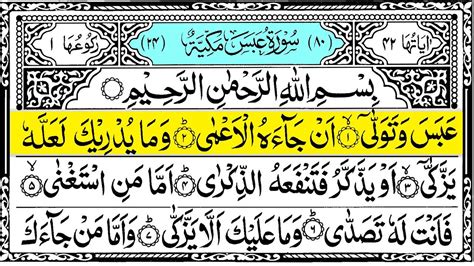 اٰيَاتُهَا ٤٢ (٨٠) سُوْرَةُ عَبَسَ مَكِّيَّةٌ (٢٤) رُكُوْعُهَا ١
بِسْمِ اللّٰهِ الرَّحْمٰنِ الرَّحِيْمِ
عَبَسَ وَتَوَلّٰىۤ ۙ‏﴿۱﴾ اَنْ جَآءَهُ الْاَعْمٰى ؕ‏﴿۲﴾ وَمَا يُدْرِيْكَ لَعَلَّهٗ
يَزَّكّٰٓى ۙ‏﴿۳﴾ اَوْ يَذَّكَّرُ فَتَنْفَعَهُ الذِّكْرٰى ؕ‏﴿۴﴾ اَمَّا مَنِ اسْتَغْنٰى ۙ‏﴿۵﴾
فَاَنْتَ لَهٗ تَصَدّٰى ؕ‏﴿۶﴾ وَمَا عَلَيْكَ اَلَّا يَزَّكّٰى ؕ‏﴿۷﴾ وَاَمَّا مَنْ جَآءَكَ